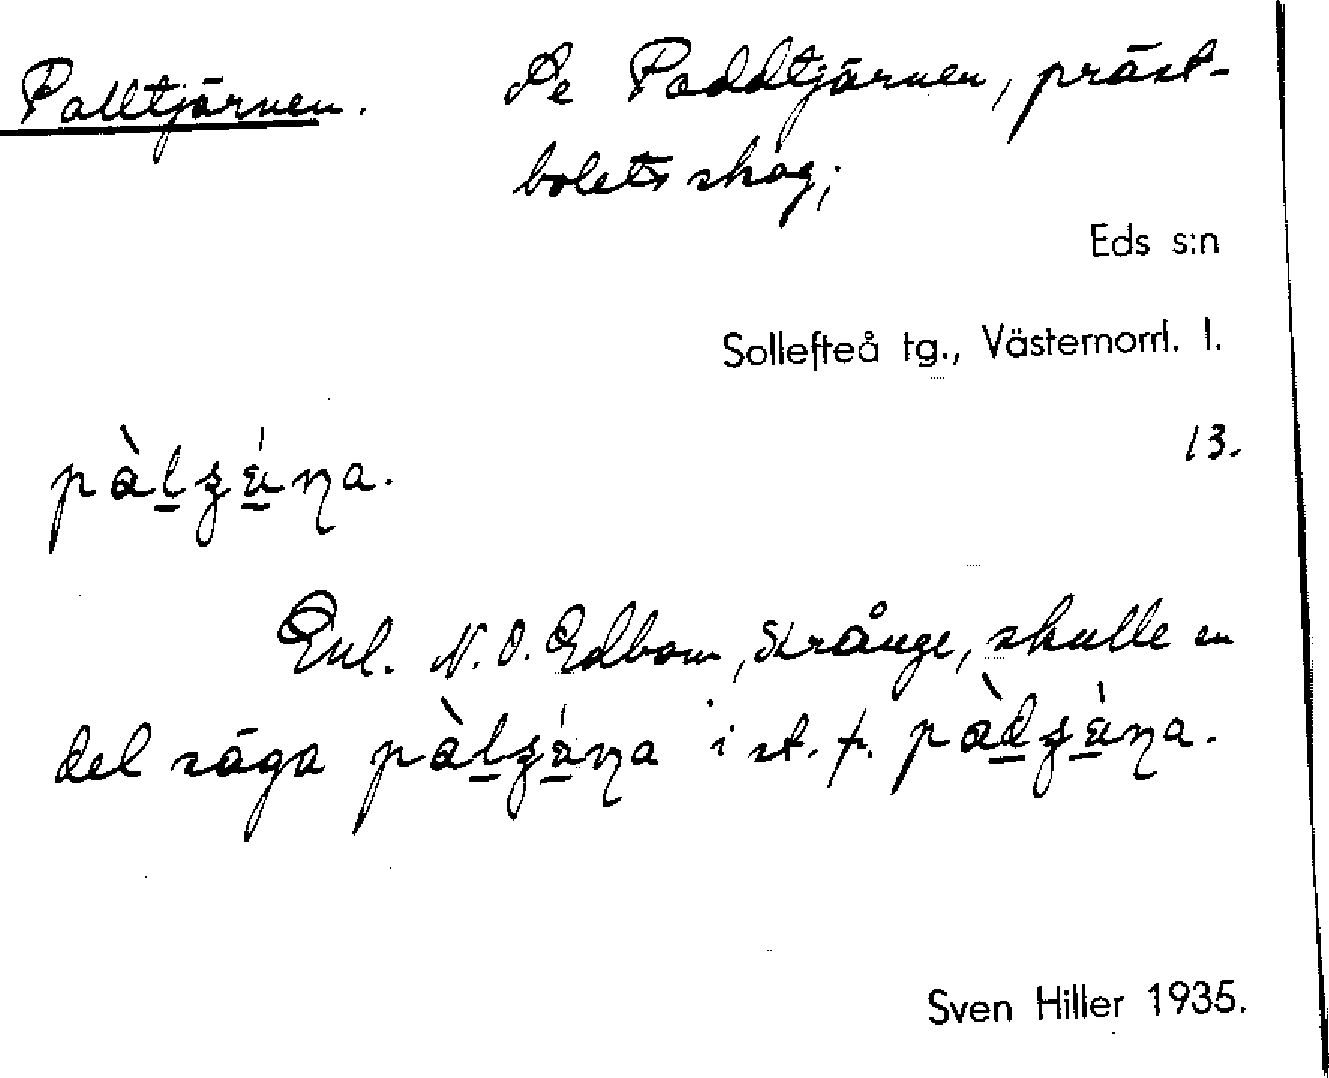 Palltjärnen. Se Paddtjärnen, präst-
bolets skog;
Eds s:n
Sollefteå tg., Västernorrl. l.
13.
Enl. N. O. Edbom, Krånge, skulle en
del säga i st. f.
Sven Hiller 1935.